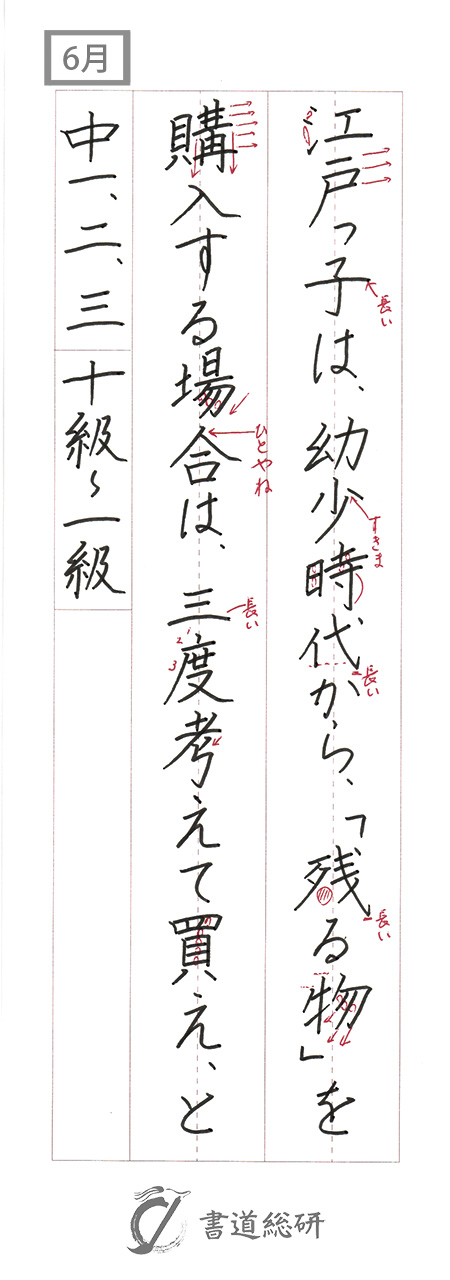 6月
江戸っ子は、幼少時代から、「残る物」を
長い
すきま
長い
長い
購入する場合は、三度考えて買え、と
ひとやね
長い
1
2
3
中一、二、三 十級〜一級
書道総研